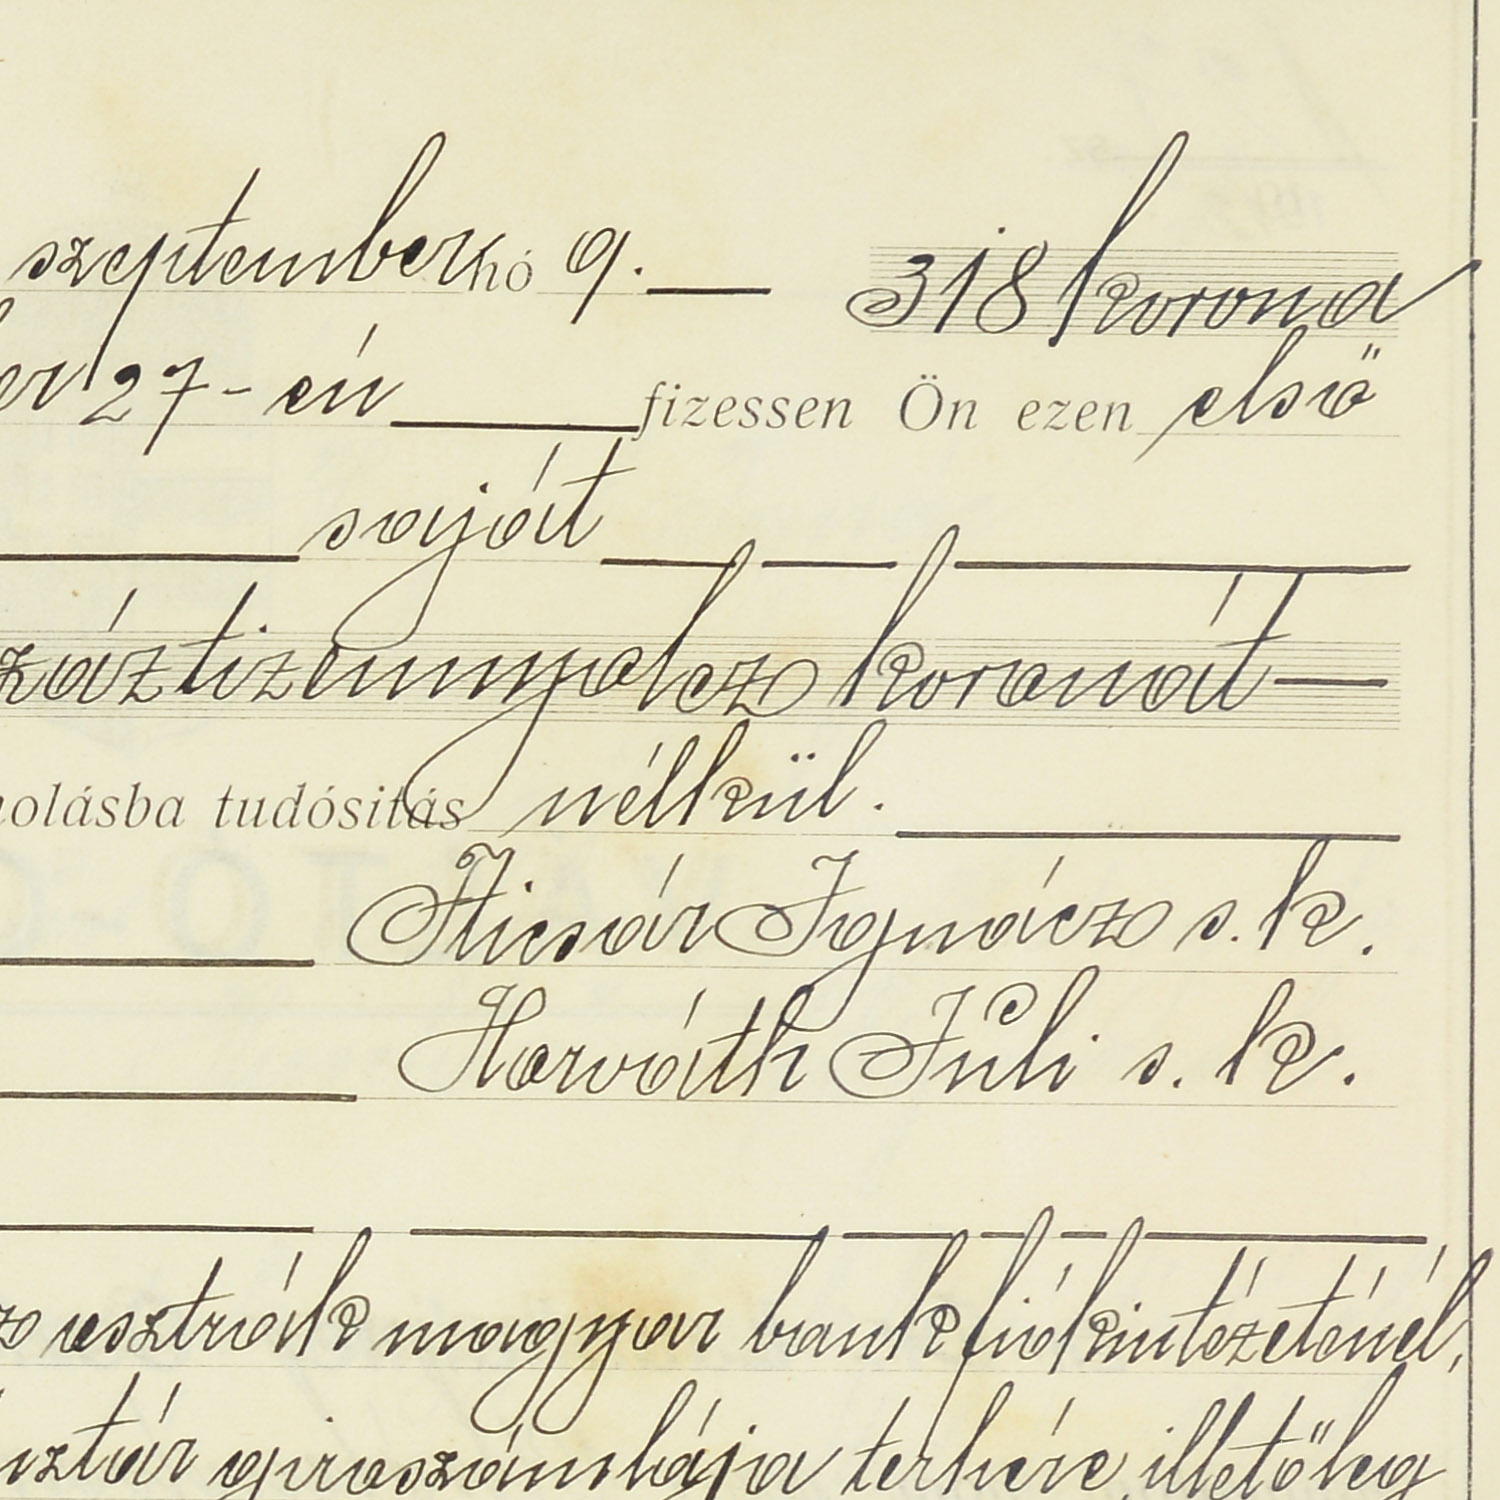 szeptember hó 9. — 318 korona
er 27-én fizessen Ön ezen első
saját
záztizennyolcz koronát —
olásba tudósitás nélkül.
Ficsór Ignácz s. k.
Horváth Juli s. k.
osztrák magyar bank fiókintézeténél,
girószámlája terhére, illetőleg